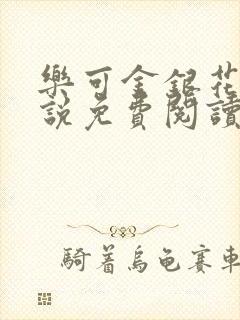 樂可金銀花
說免費閱讀
騎着烏龜賽車